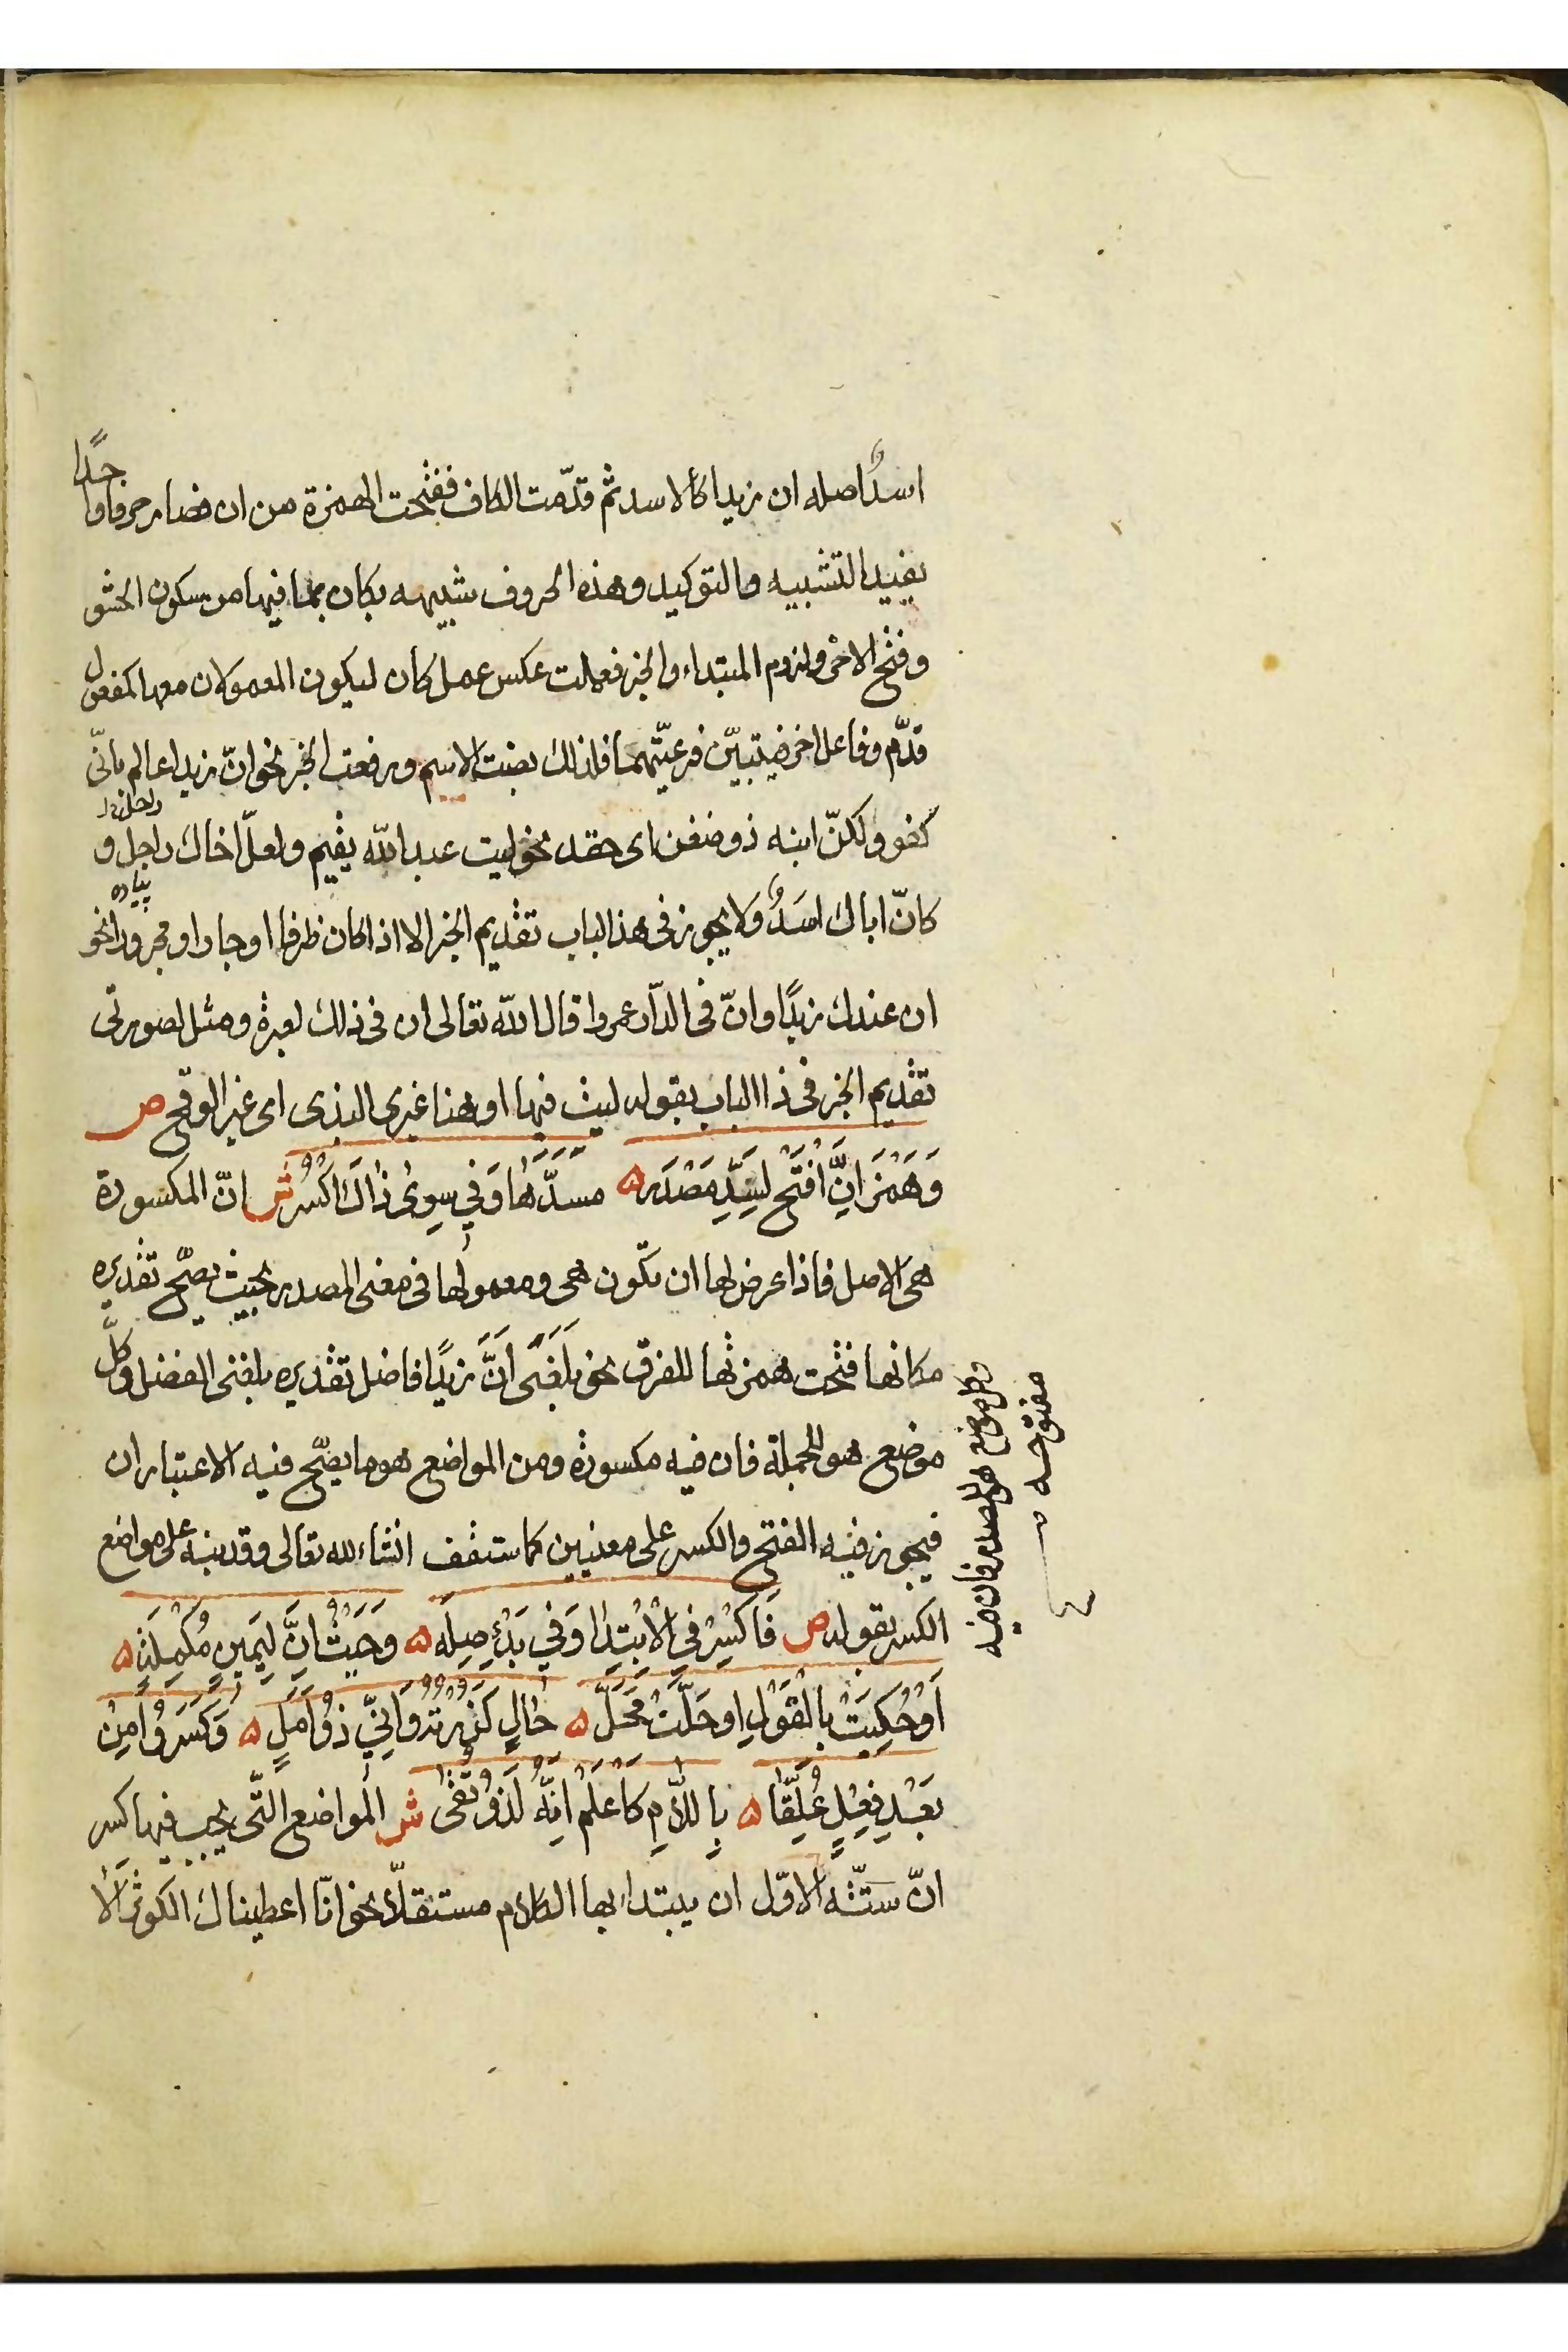 اسدٌ اصله ان زيدا كالاسد ثم قدّمت الكاف ففتحت الهمزة من ان فصار حرفا واحدًا
يفيد التشبيه والتوكيد وهذه الحروف شبيهه بكان بما فيها من سكون الحشو
وفتح الاخر ولزوم المبتداء والخبر فعملت عكس عمل كان ليكون المعمولان معها كمفعول
قدّم وفاعل اخر فيتبيّن فرعيّتهما فلذلك نصبت الاسم ورفعت الخبر نحو انّ زيدا عالم بانّى
كفو ولكنّ ابنه ذو ضغن اى حقد نحو ليت عبد الله يقيم ولعلّ اخاك راجل و
پياده
كانّ اباك اسَدٌ ولا يجوز فى هذا لباب تقديم الخبر الا اذا كان ظرفا او جارا ومجرورا نحو
ان عندك زيدًا وانّ فى الدّار عمروا قال الله تعالى ان فى ذلك لعبرة ومثل لصورتى
تقديم الخبر فى ذا الباب بقوله ليث فيها او هنا غيرى البذى اى غير الوقح ص
وَهَمْزَ اِنَّ افْتَح لِسَدِّ مَصْدَرِ ۵ مسدَّهَا وَفِي سِوىٰ ذاكَ اكْسُرِ ش انّ المكسورة
هى الاصل فاذا عرض لها ان تكون هى ومعمولها فى معنى المصدر بحيث يصّح تقديره
مكانها فتحت همزتها للفرق نحو بلَغَنى اَنَّ زيدًا فاضل تقديره بلغنى الفضل وكلّ
موضع هو للجملة فان فيه مكسورة ومن المواضع هو ما يصّح فيه الاعتباران
فيجوز فيه الفتح والكسر على معنيين كما ستقف انشاء لله تعالى وقد نبه على مواضع
الكسر بقوله ص فَاكْسِرْ فِي الْاِبْتِدٰا وَفي بَدْءِ صِلَه ۵ وَحَيْثُ اِنَّ لِيَمينٍ مُكْمِلَه ۵
اَوْ حُكِيَتْ بِالْقَوْلِ او حَلَّتْ مَحَلَّ ۵ حٰالٍ كَزُرْتُهُ وَاِنّي ذوُ اَمَلٍ ۵ وَكَسَروُا مِنْ
بَعْدِ فِعْلٍ عُلِّقَا ۵ بِاللّامِ كَاعْلَمْ اِنَّهُ لَذوُ تُقٰى ش المواضع الّتى يجب فيها كسر
انّ ستّه الاوّل ان يبتداء بها الكلام مستقلّا نحو انّا اعطيناك الكوثر الا
وكل موضع هو للمصدر فان فيه
مفتوحه